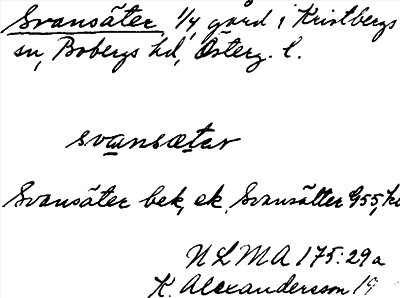 Svansäter, 1/4 gård i Kristbergs
sn, Bobergs hd, Österg. l.
svansætər
Svansäter bek, ek. Svansätter G55,
NLMA 175:29a
K. Alexandersson 19